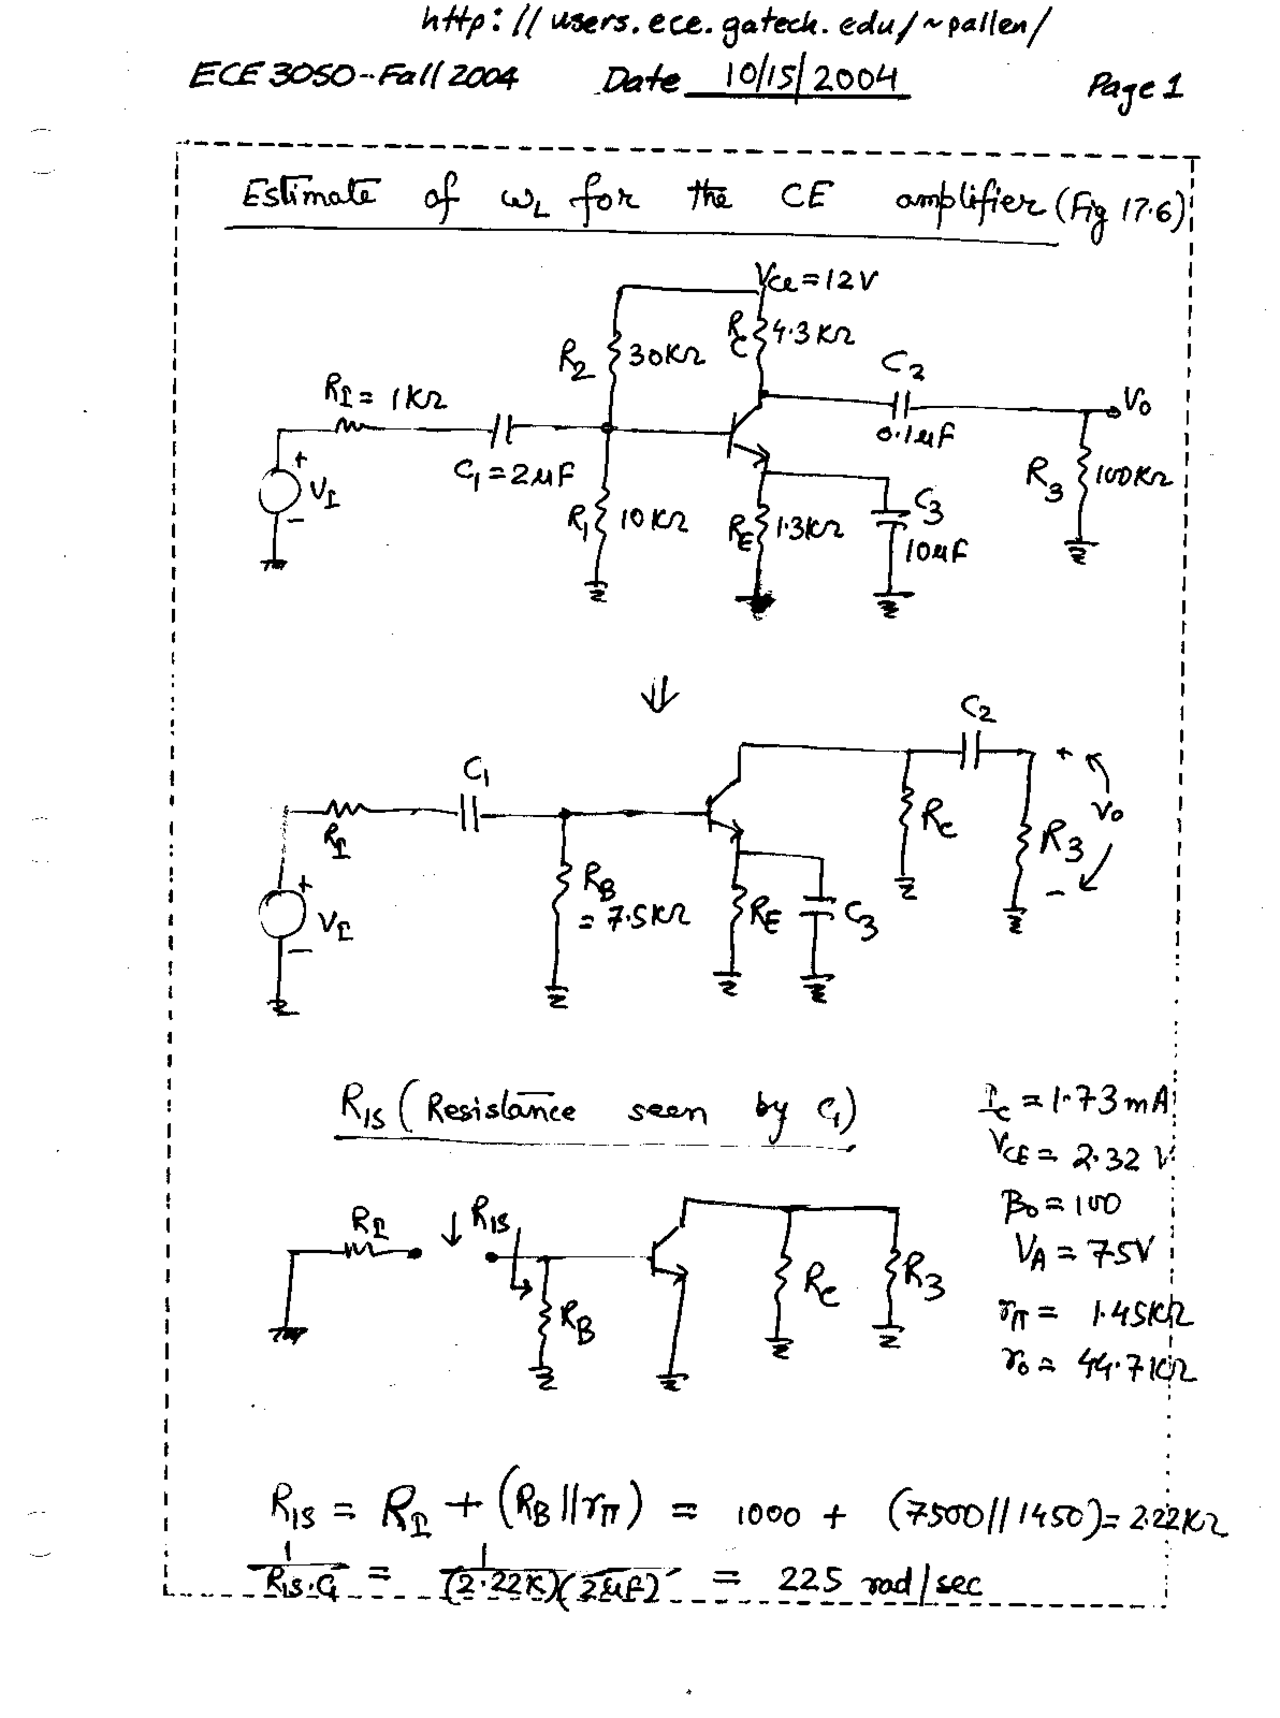 http://users.ece.gatech.edu/~pallen/
ECE 3050--Fall 2004 Date 10/15/2004 Page 1
Estimate of ωL for the CE amplifier (Fig 17.6)
Vcc = 12V
R2 30KΩ
RC 4.3KΩ
C2
0.1μF
Vo
RI = 1KΩ
C1 = 2μF
+
VI
-
R1 10KΩ
RE 1.3KΩ
C3
10μF
R3 100KΩ
⇓
C2
C1
RI
+
VI
-
RB
= 7.5KΩ
RE
C3
RC
R3
+
Vo
-
R1S (Resistance seen by C1)
Ic = 1.73mA
VCE = 2.32 V
βo = 100
VA = 75V
rπ = 1.45KΩ
ro = 44.7KΩ
RI
↓ R1S
RB
RC
R3
R1S = RI + (RB || rπ) = 1000 + (7500 || 1450) = 2.22KΩ
1/R1S.C1 = 1/(2.22K)(2μF) = 225 rad/sec